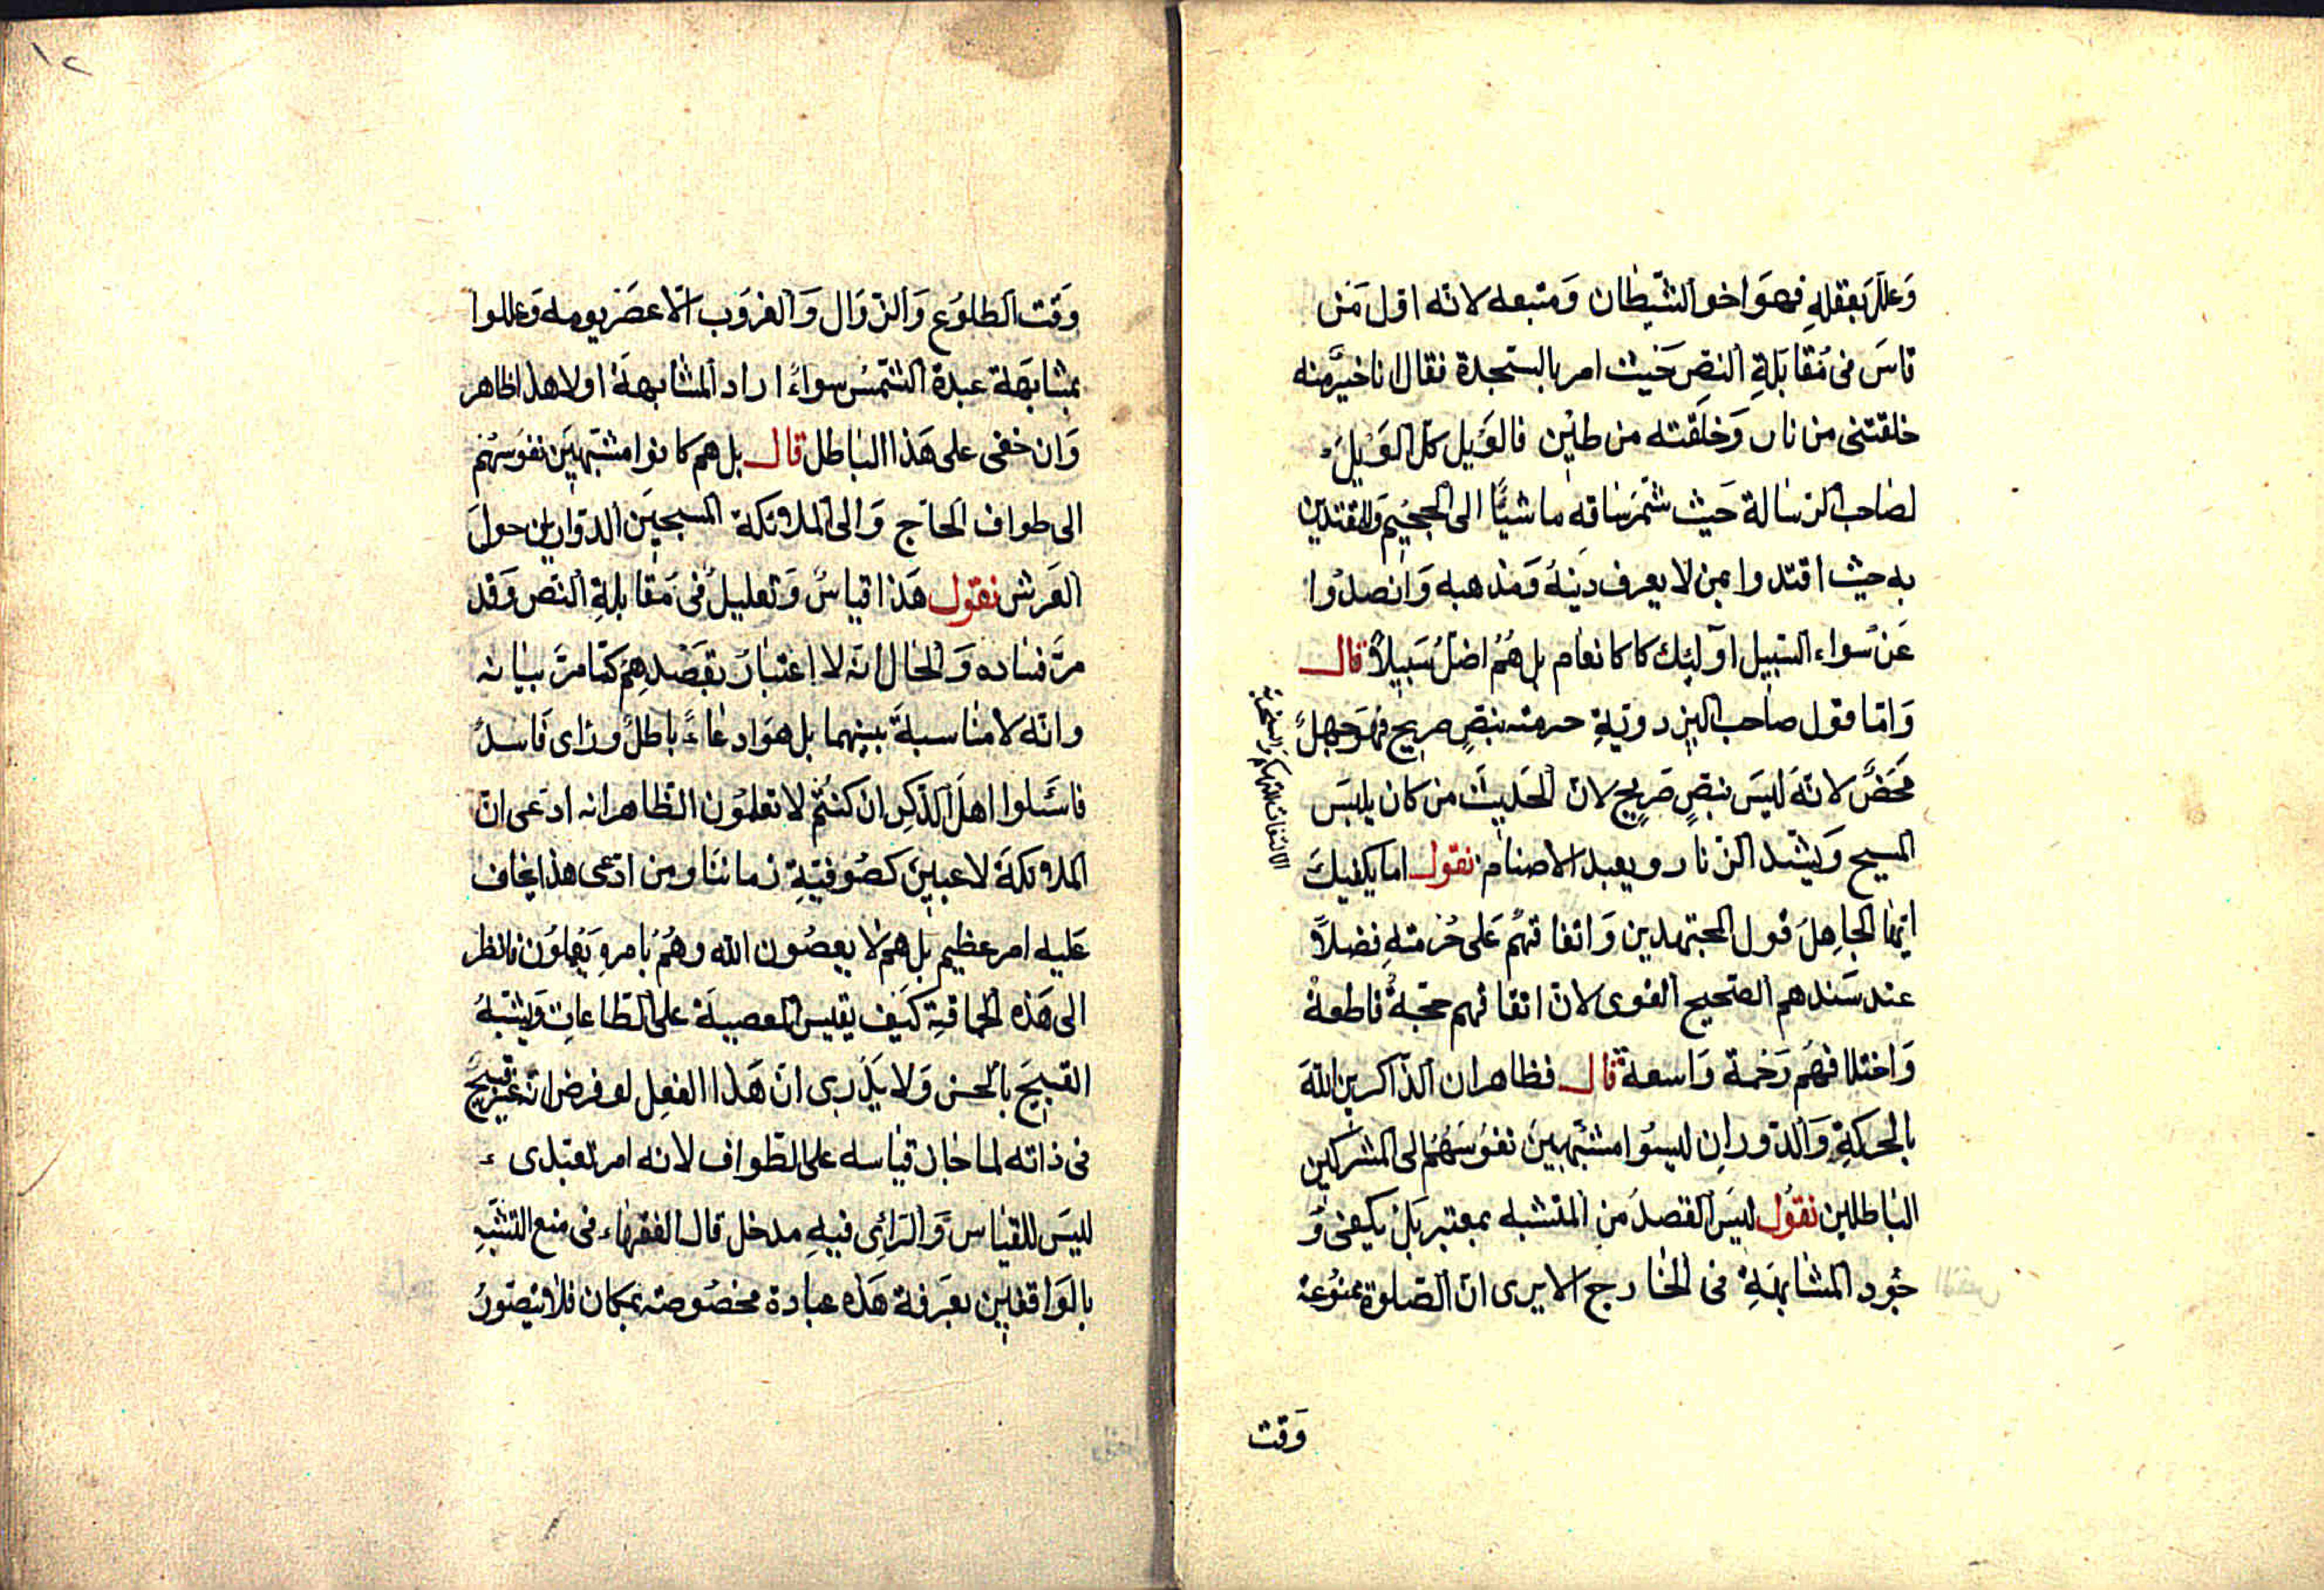 وَعللَ بعقلهِ فهوَ اخو الشيطان وَمتبعه لانه اول مَن
قاسَ فى مُقابَلةِ النصِ حَيث امر بالسَجدة فقال انا خيرٌ منه
خلقتنى من نار وَخلَقته من طيْن فالوَيل كل الوَيلَ
لصَاحب الرسَالة حَيث شمَّرَ سَاقه مَاشيًا الى الجحيْم وَللمقتدين
به حيث اقتدوا بمن لا يعرف دينهُ وَمذهبه وَانصدُوا
عَن سَواء السَبيل اولئِك كا كانعَام بل هُمْ اضلُ سَبيلاً قال
وَامّا قول صَاحب البزدويّةِ حرمته بنصٍ صريح فهوَ جهلٌ
مَحَضٌ لانهَ ليسَ بنصٍ صَريحٍ لان الحَديثَ من كان يلبسَ
المسيح وَيشد الزنار ويعبد الاصنام نقول اما يكفيكَ
ايّها الجاهِلَ قول المجتهدين وَاتفاقهُم عَلى حُرْمتهِ فضلاً
عند سَندهم الصَحيح القوى لان اتفاقهم حجّةٌ قاطعةٌ
وَاختلافهُم رَحْمة وَاسعة قال فظاهر ان الذاكرين اللهَ
بالحركةِ وَالدّورانِ ليسوُا مشبّهيِينَ نفوُسَهُم الى المشركين
البَاطلين نقوُل ليسَ القصدُ من المتشبه بمعتبر بَلْ يكفى وُ
جُود المشابهَةِ فى الخارج الا يرى انّ الصّلوةَ ممنوُعة
الالتفات للتهكم وَالسخرية
وَقت
١٢
وَقت الطلوُع وَالزّوَال وَالغروَب الاّ عصَرَ يومه وَعللوا
بمشابهَة عبدة الشمسُ سواءً اراد المشابهةَ اولا هذا ظاهر
وَان خفى على هَذا البَاطل قال بل هم كانوا مشبّهيِينَ نفوسَهُم
الى طواف الحَاج وَالى الملائكة المسبحيَن الدوّارين حولَ
العَرش نقول هَذا قياسٌ وَتعليلٌ فى مَقابلةِ النّصِ وَقد
مرَّ فسَاده وَالحَال انّه لا اعتبَارَ بقصْدهِم كمَا مرّ بيَانه
وانه لا منَاسبةَ بينهما بل هوَ ادعَاءً باطلٌ ورَاى فَاسدٌ
فاسَئلوا اهلَ الذّكِر ان كنتُم لا تعلمُون الظاهر انه ادّعى انّ
الملائكةَ لاعبيِنَ كصُوفيّةِ زماننَا ومن ادّعى هذا يخاف
عَليه امر عظيم بل هم لا يعصُون الله وهُمْ بامرهِ يَعْملوُن فانظر
الى هَذه الحماقةِ كيَف يقيس المعصيةَ على الطاعَاتِ وَيشبّهُ
القبيَحَ بالحسن وَلا يَدْرى انّ هَذا الفعِل لو فرض انّه غير قبيحٌ
فى ذاته لما جَاز قيَاسه على الطّواف لانه امر تعبّدى
ليسَ للقيَاسَ وَالرّائِ فيهِ مدخل قال الفقهَاء فى منع التشبّهِ
بالوَاقفيِن بعَرفة هَذه عبادة مخصُوصَة بمكَان فلا يتصَوّرُ